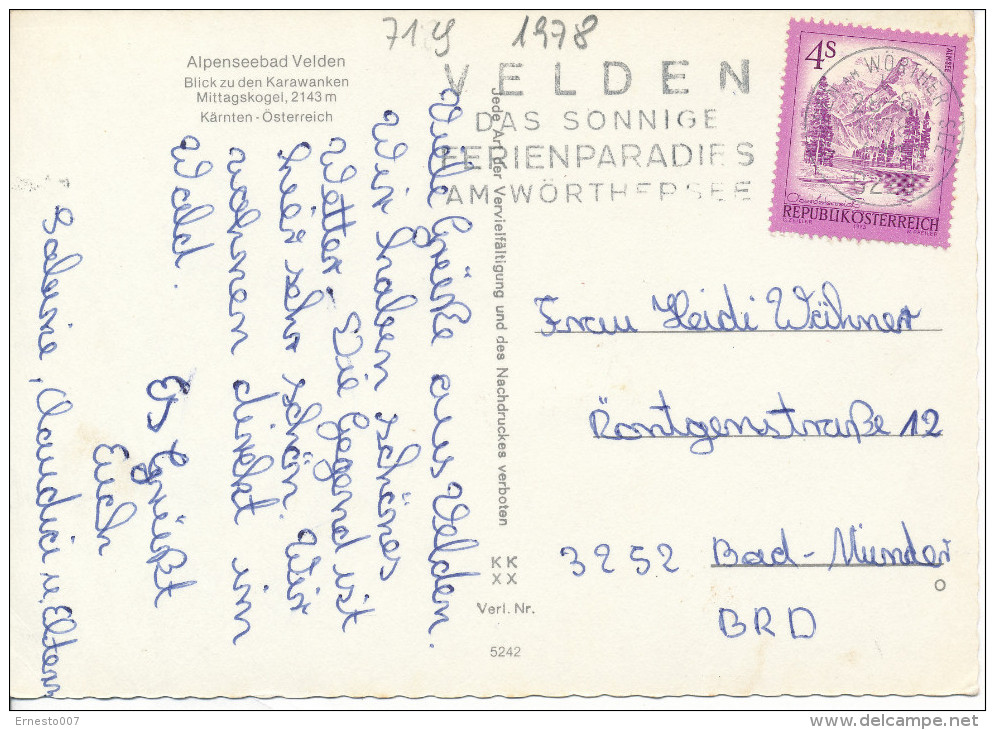 1978
Alpenseebad Velden
Blick zu den Karawanken
Mittagskogel, 2143 m
Kärnten - Österreich
VELDEN
DAS SONNIGE
FERIENPARADIES
AM WÖRTHERSEE
4S
ALMSEE
AM WÖRTHER SEE
REPUBLIK ÖSTERREICH
Viele Grüße aus Velden.
Wir haben schönes
Wetter. Die Gegend ist
hier sehr schön. Wir
wohnen direkt im
Wald.
Es grüßt
Euch
u. Eltern
Jede Art der Vervielfältigung und des Nachdruckes verboten
Frau Heidi Wähner
Röntgenstraße 12
3252 Bad-Münder
BRD
KK
XX
Verl. Nr.
5242
Ernesto007
delcampe.net